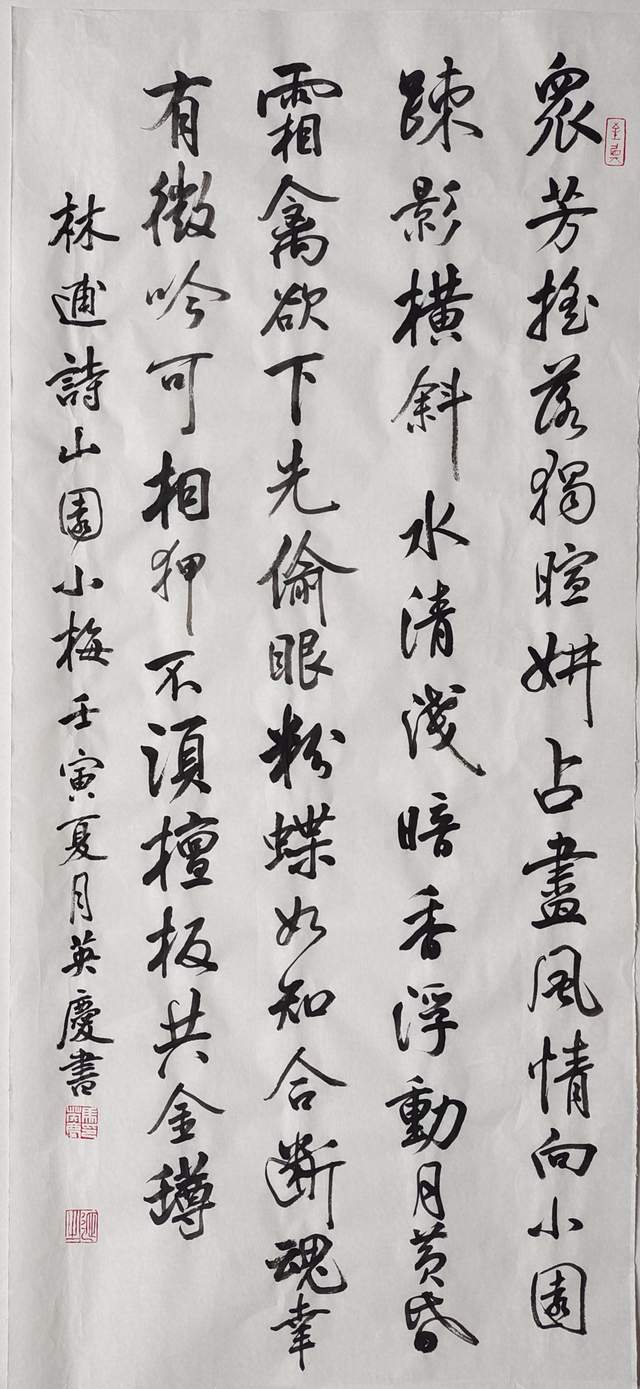 衆芳摇落獨暄妍占盡風情向小園
踈影横斜水清淺暗香浮動月黄昏
霜禽欲下先偷眼粉蝶如知合斷魂幸
有微吟可相狎不須檀板共金罇
林逋詩山園小梅壬寅夏月英慶書